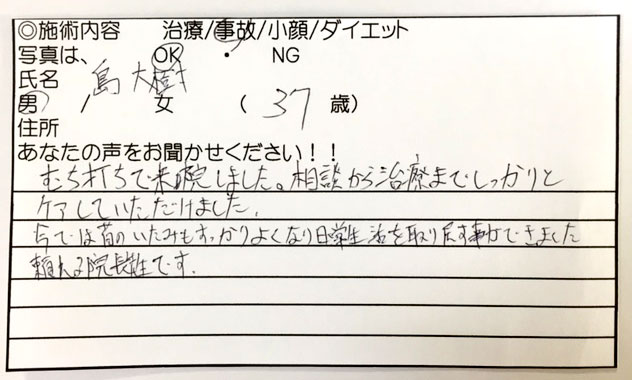 ◎施術内容 治療/事故/小顔/ダイエット
写真は、 OK ・ NG
氏名 島 大樹
男 / 女 ( 37 歳)
住所
あなたの声をお聞かせください！！
むち打ちで来院しました。相談から治療までしっかりと
ケアしていただけました。
今では首のいたみもすっかりよくなり日常生活を取り戻す事ができました
頼れる院長先生です。